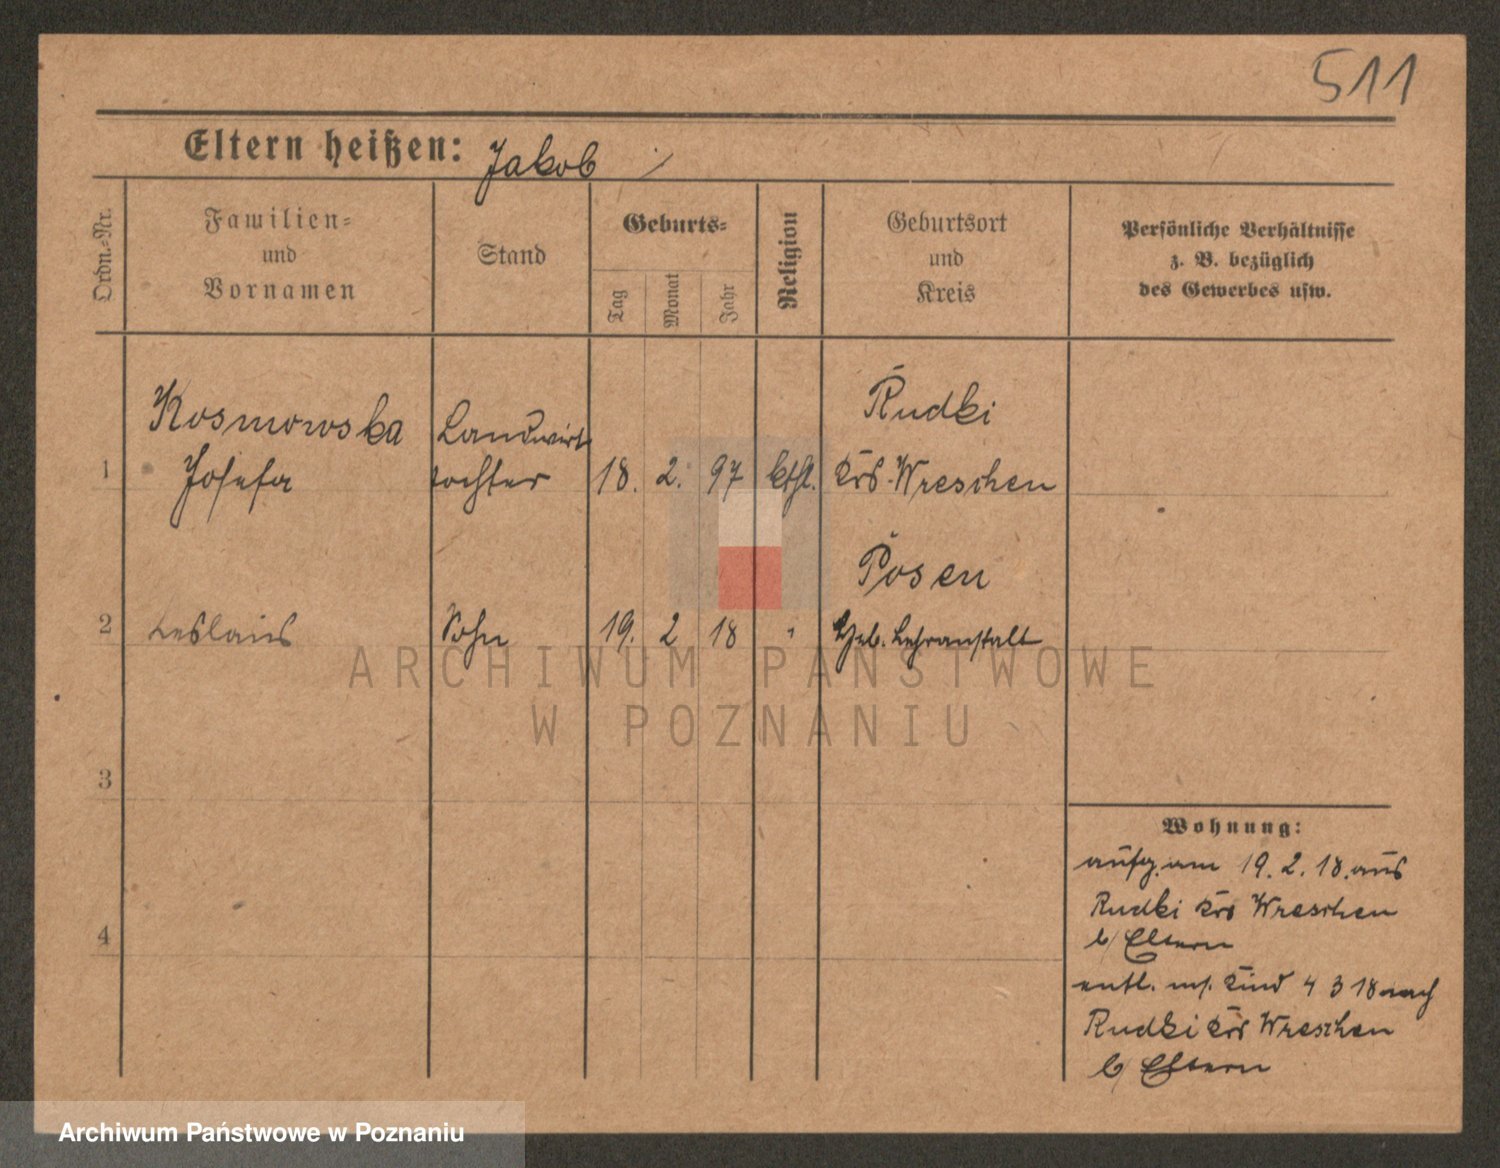 511
Eltern heißen: Jakob
Ordn.-Nr.
Familien-
und
Vornamen
Stand
Geburts-
Tag
Monat
Jahr
Religion
Geburtsort
und
Kreis
Persönliche Verhältnisse
z. B. bezüglich
des Gewerbes usw.
Kosmowska
Landwirts
Rudki
1 Josefa tochter 18. 2. 97 kthl. Krs. Wreschen
Posen
2 Sohn 19. 2 18 " Heb. Lehranstalt
ARCHIWUM PAŃSTWOWE
W POZNANIU
3
4
Wohnung:
aufg. am 19. 2. 18. aus
Rudki Krs Wreschen
b/ Eltern
entl. m/. Kind 4 3 18 nach
Rudki Krs Wreschen
b/ Eltern
Archiwum Państwowe w Poznaniu